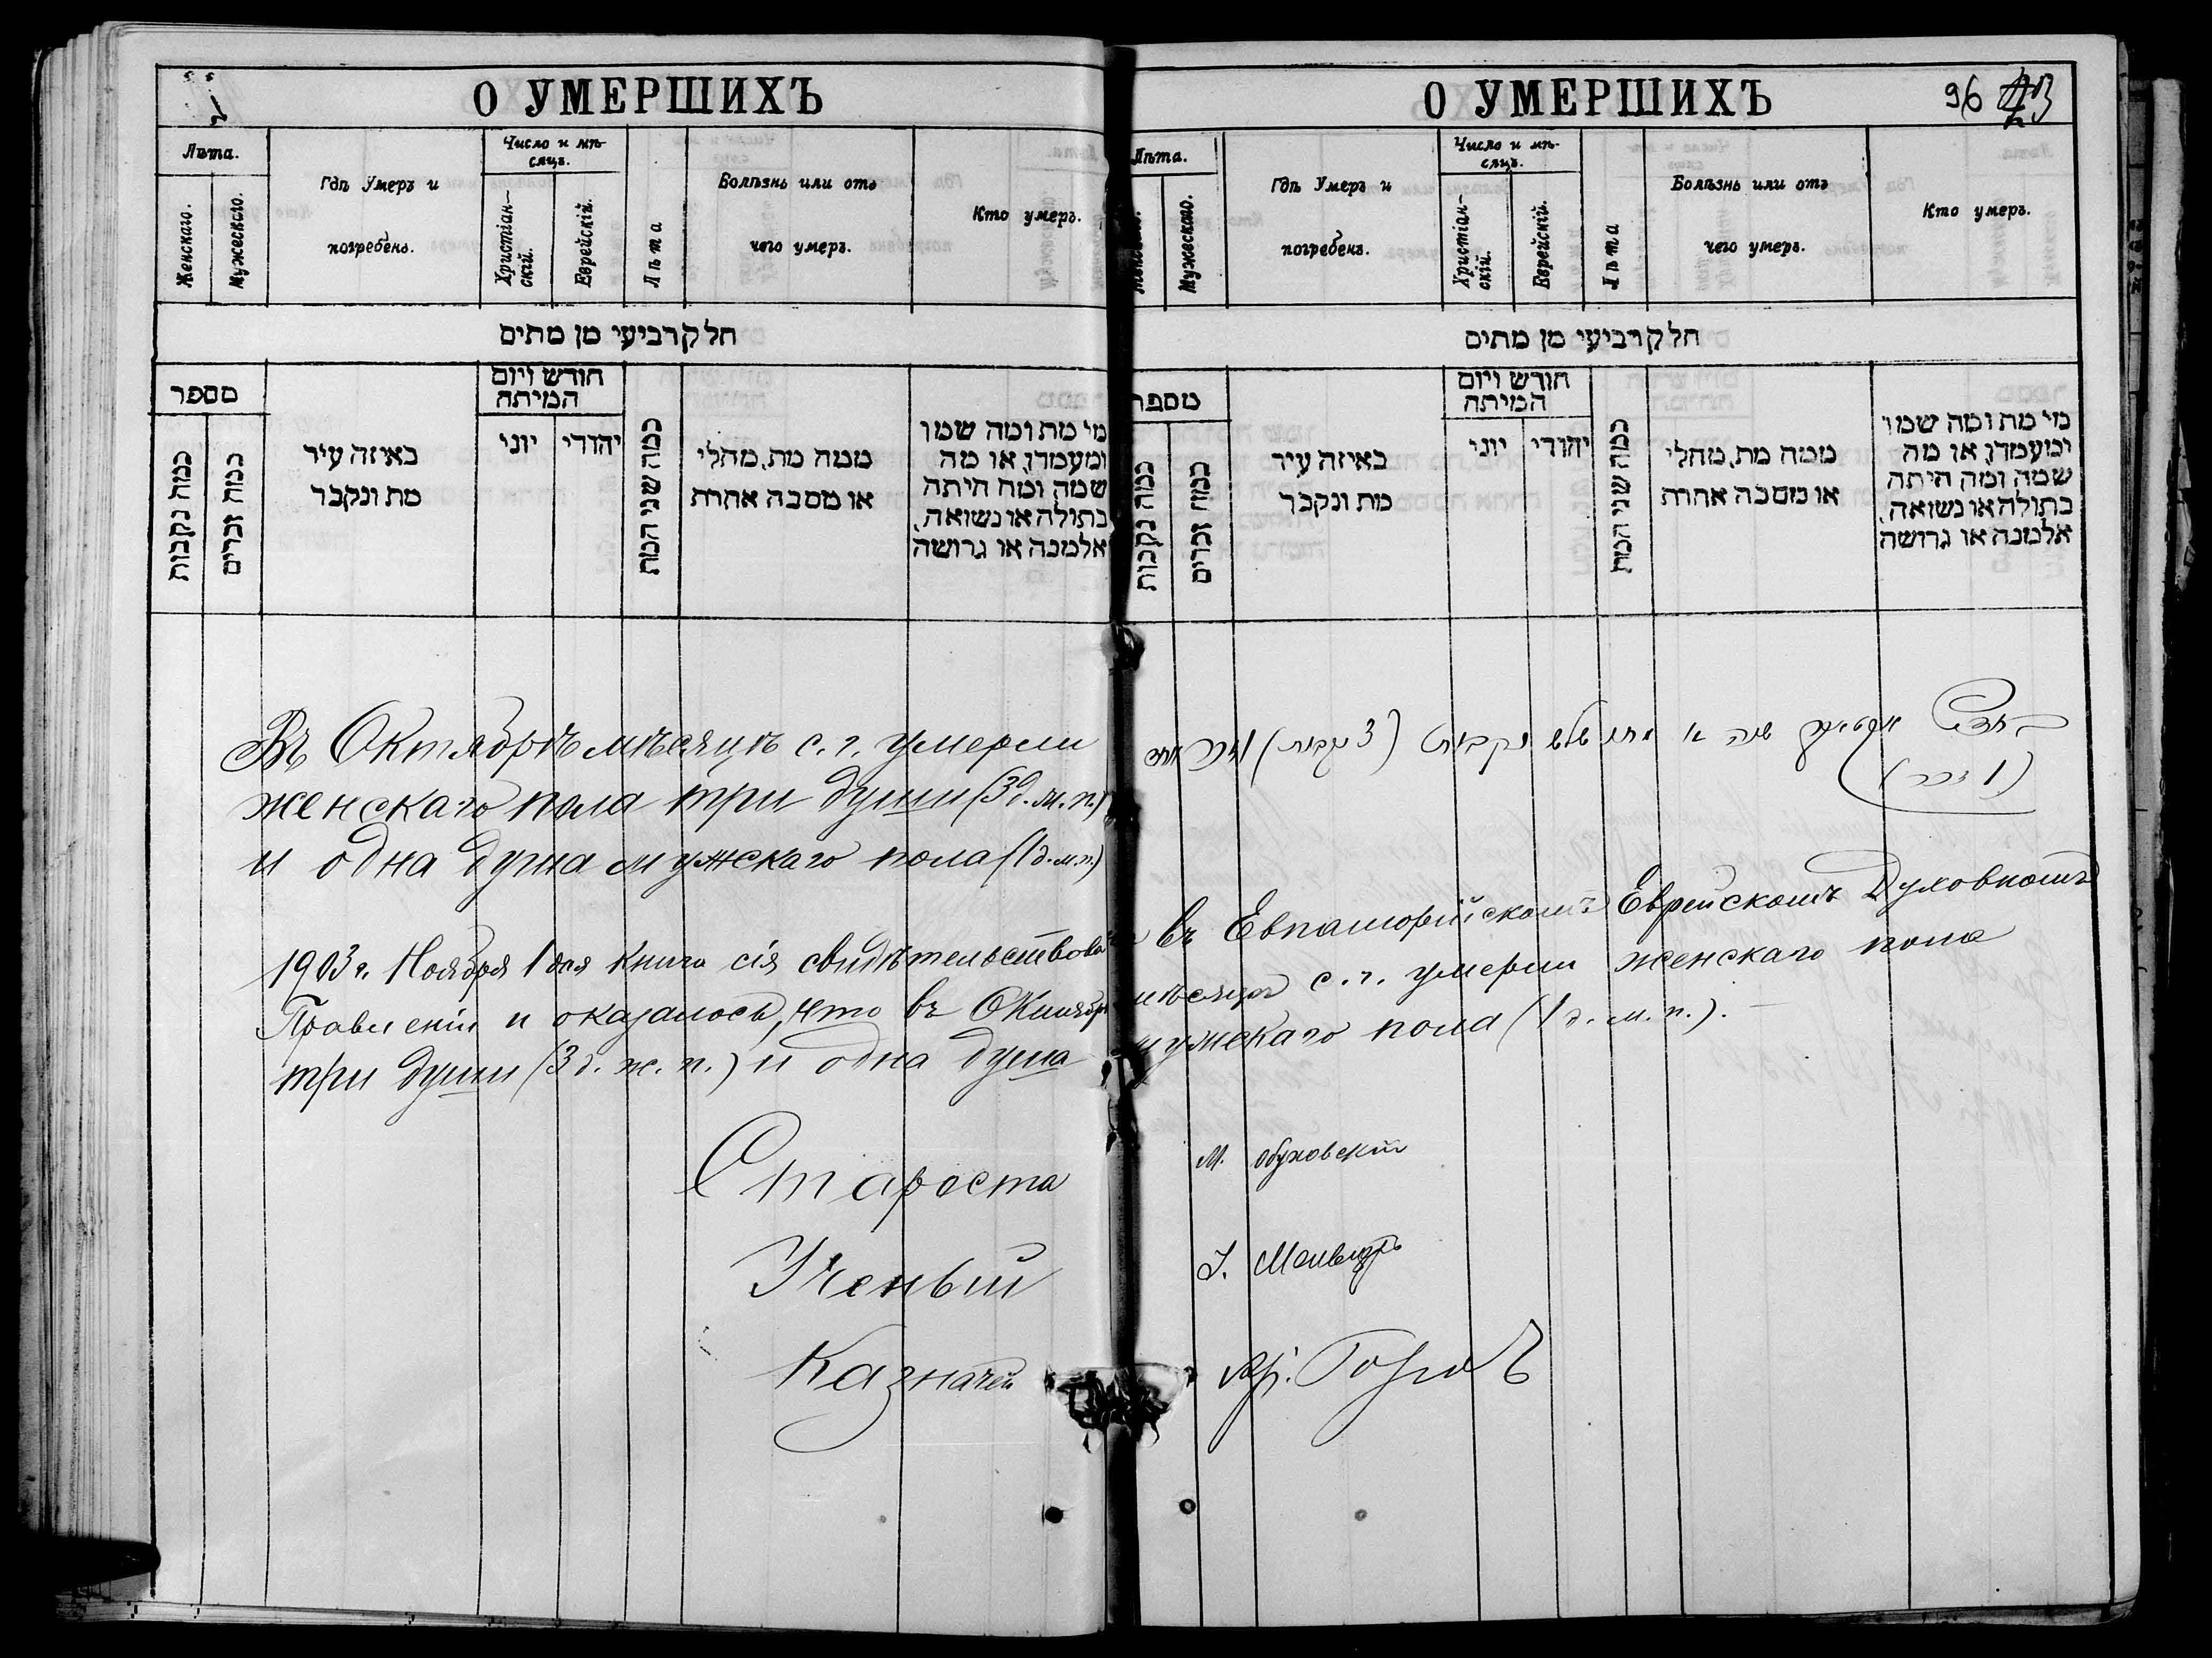 О УМЕРШИХЪ
Лѣта.
Женскаго.
Мужескаго.
Гдѣ Умеръ и
погребенъ.
Число и мѣ-
сяцъ.
Христіан-
скій.
Еврейскій.
Лѣта
Болѣзнь или отъ
чего умеръ.
Кто умеръ.
חלק רביעי מן מתים
מספר
כמה נקבות
כמה זכרים
באיזה עיר
מת ונקבר
חודש ויום
המיתה
יוני
יהודי
כמה שני המת
ממה מת, מחלי
או מסבה אחרת
מי מת ומה שמו
ומעמדו, או מה
שמה ומה היתה
בתולה או נשואה,
אלמנה או גרושה
Въ Октябрѣ мѣсяцѣ с. г. умерли
женскаго пола три души (3 д. м. п.)
и одна душа мужскаго пола (1 д. м. п.)
О УМЕРШИХЪ
96
Лѣта.
Мужескаго.
Гдѣ Умеръ и
погребенъ.
Число и мѣ-
сяцъ.
Христіан-
скій.
Еврейскій.
Лѣта
Болѣзнь или отъ
чего умеръ.
Кто умеръ.
חלק רביעי מן מתים
מספר
כמה נקבות
כמה זכרים
באיזה עיר
מת ונקבר
חודש ויום
המיתה
יוני
יהודי
כמה שני המת
ממה מת, מחלי
או מסבה אחרת
מי מת ומה שמו
ומעמדו, או מה
שמה ומה היתה
בתולה או נשואה,
אלמנה או גרושה
שלש נקבות (3 נקבות)
(1 זכר)
1903 г. Ноября 1 дня книга сія въ Евпаторійскомъ Еврейскомъ Духовномъ
Правленіи и оказалось, что въ Октябрѣ мѣсяцѣ с. г. умерли женскаго пола
три души (3 д. ж. п.) и одна душа мужскаго пола (1 д. м. п.).
Староста М. Обуховскій
Ученый І.
Казначей